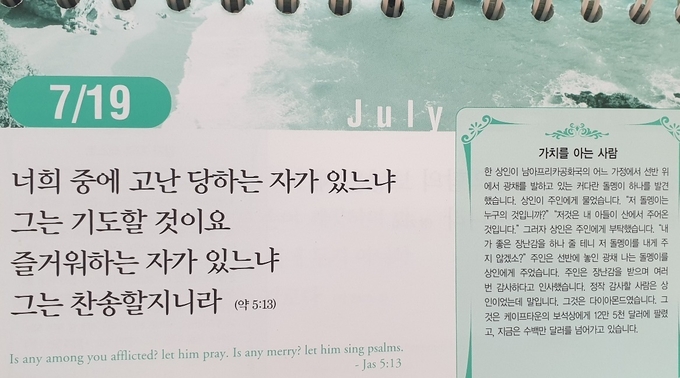 7/19
July
너희 중에 고난 당하는 자가 있느냐
그는 기도할 것이요
즐거워하는 자가 있느냐
그는 찬송할지니라 (약 5:13)
Is any among you afflicted? let him pray. Is any merry? let him sing psalms.
- Jas 5:13
가치를 아는 사람
한 상인이 남아프리카공화국의 어느 가정에서 선반 위
에서 광채를 발하고 있는 커다란 돌멩이 하나를 발견
했습니다. 상인이 주인에게 물었습니다. "저 돌멩이는
누구의 것입니까?" "저것은 내 아들이 산에서 주어온
것입니다." 그러자 상인은 주인에게 부탁했습니다. "내
가 좋은 장난감을 하나 줄 테니 저 돌멩이를 내게 주
지 않겠소?" 주인은 선반에 놓인 광채 나는 돌멩이를
상인에게 주었습니다. 주인은 장난감을 받으며 여러
번 감사하다고 인사했습니다. 정작 감사할 사람은 상
인이었는데 말입니다. 그것은 다이아몬드였습니다. 그
것은 케이프타운의 보석상에게 12만 5천 달러에 팔렸
고, 지금은 수백만 달러를 넘어가고 있습니다.